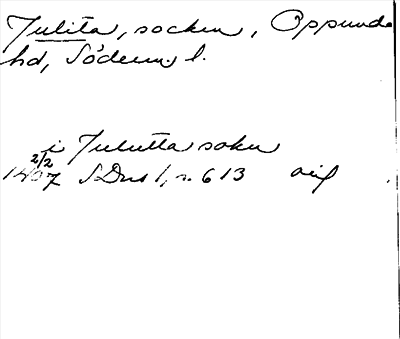 Julita, socken, Oppunda
hd, Söderm. l.
i Julitta sokn
2/2 1407 SDns 1, s. 613 orig